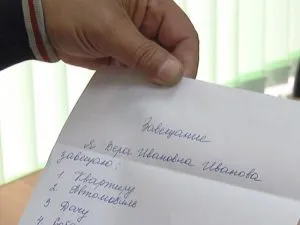 Завещание
Я Вера Ивановна Иванова
завещаю:
1 Квартиру
2 Автомобиль
3 Дачу
4